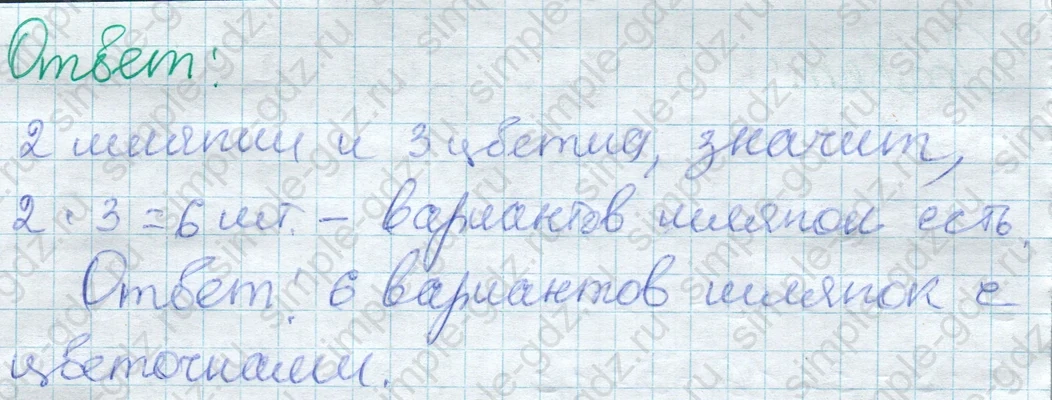 Ответ:
2 шляпки и 3 цветка, значит,
2 · 3 = 6 шт. – вариантов шляпок есть.
Ответ: 6 вариантов шляпок с
цветочками.